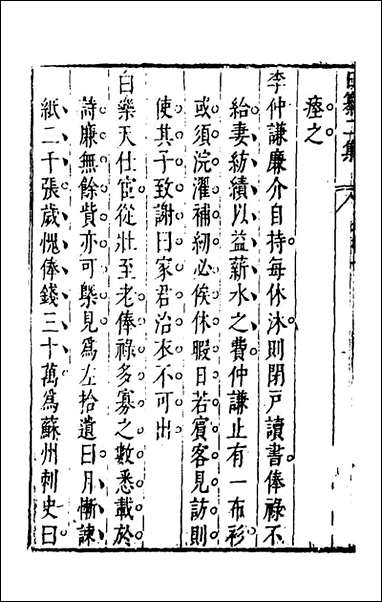 瘞之
李仲謙廉介自持每休沐則閉戸讀書俸祿不
給妻紡績以益薪水之費仲謙止有一布衫
或須浣濯補紉必俟休暇日若賓客見訪則
使其子致謝曰家君治衣不可出
白樂天仕宦從壯至老俸祿多寡之數悉載於
詩廉無餘貲亦可槩見爲左拾遺曰月慚諫
紙二千張歲愧俸錢三十萬爲蘇州刺史曰